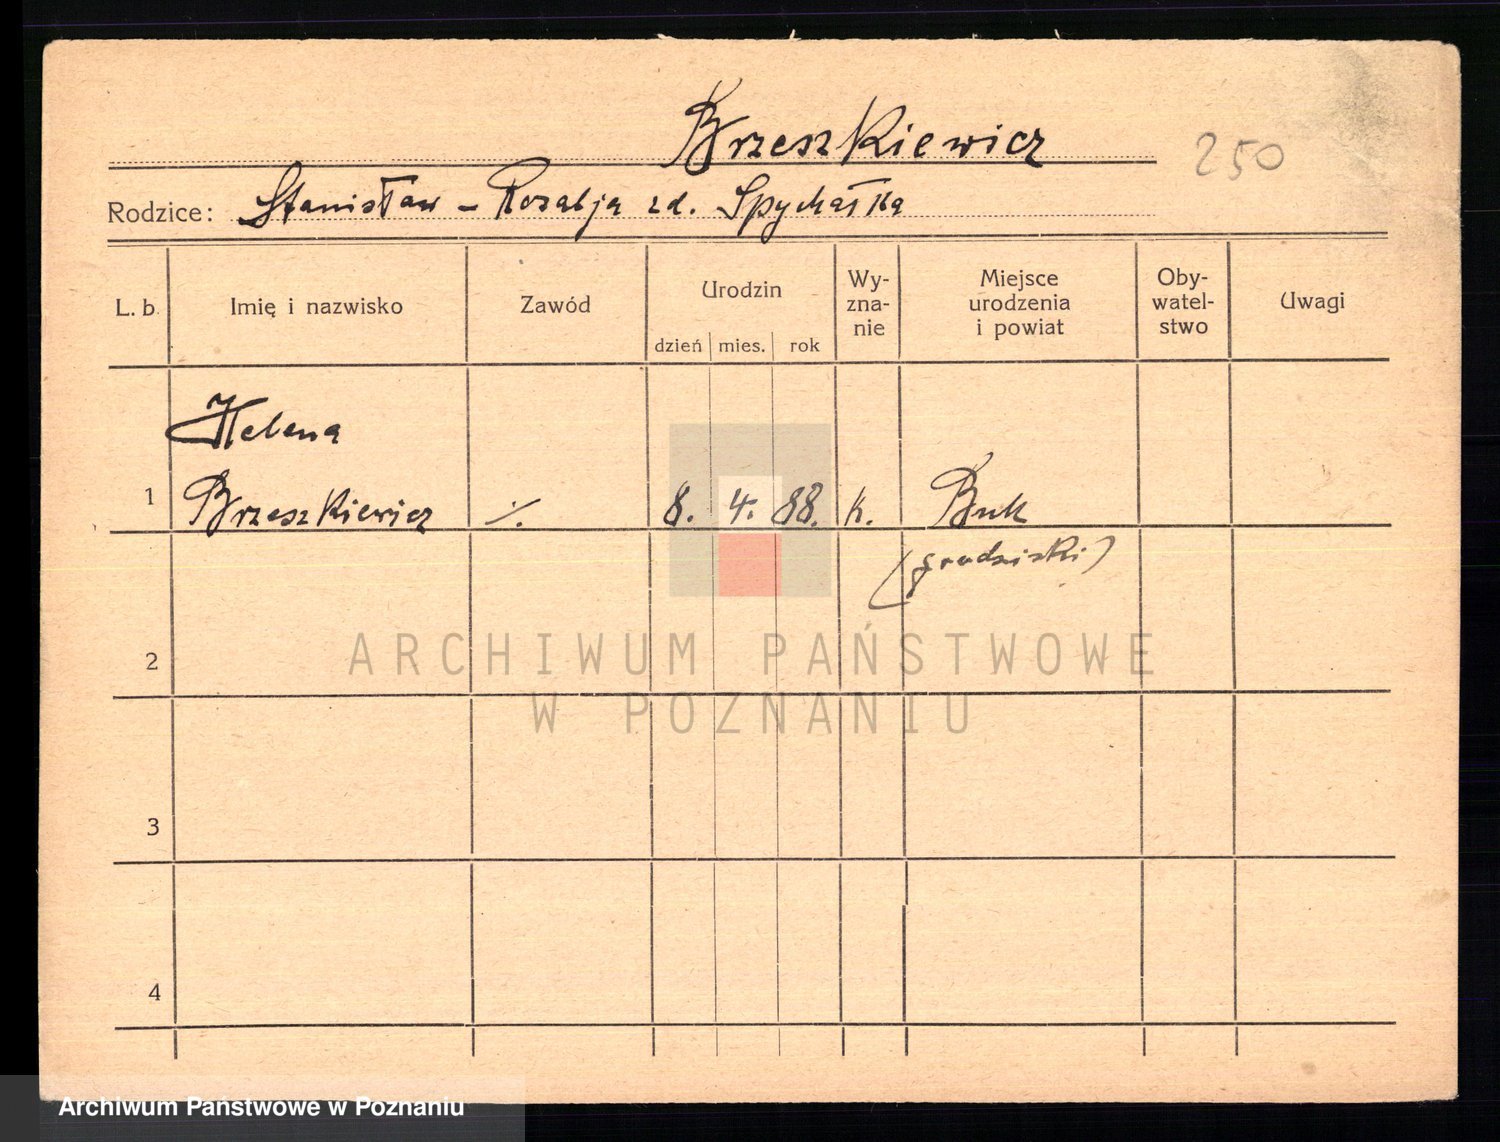 Brzeszkiewicz
250
Rodzice: Stanisław – Rozalja zd. Spychałka
L. b.
Imię i nazwisko
Zawód
Urodzin
dzień mies. rok
Wy-
zna-
nie
Miejsce
urodzenia
i powiat
Oby-
watel-
stwo
Uwagi
Helena
1 Brzeszkiewicz ./. 8. 4. 88. k. Buk
(grodziski)
2
3
4
ARCHIWUM PAŃSTWOWE
W POZNANIU
Archiwum Państwowe w Poznaniu